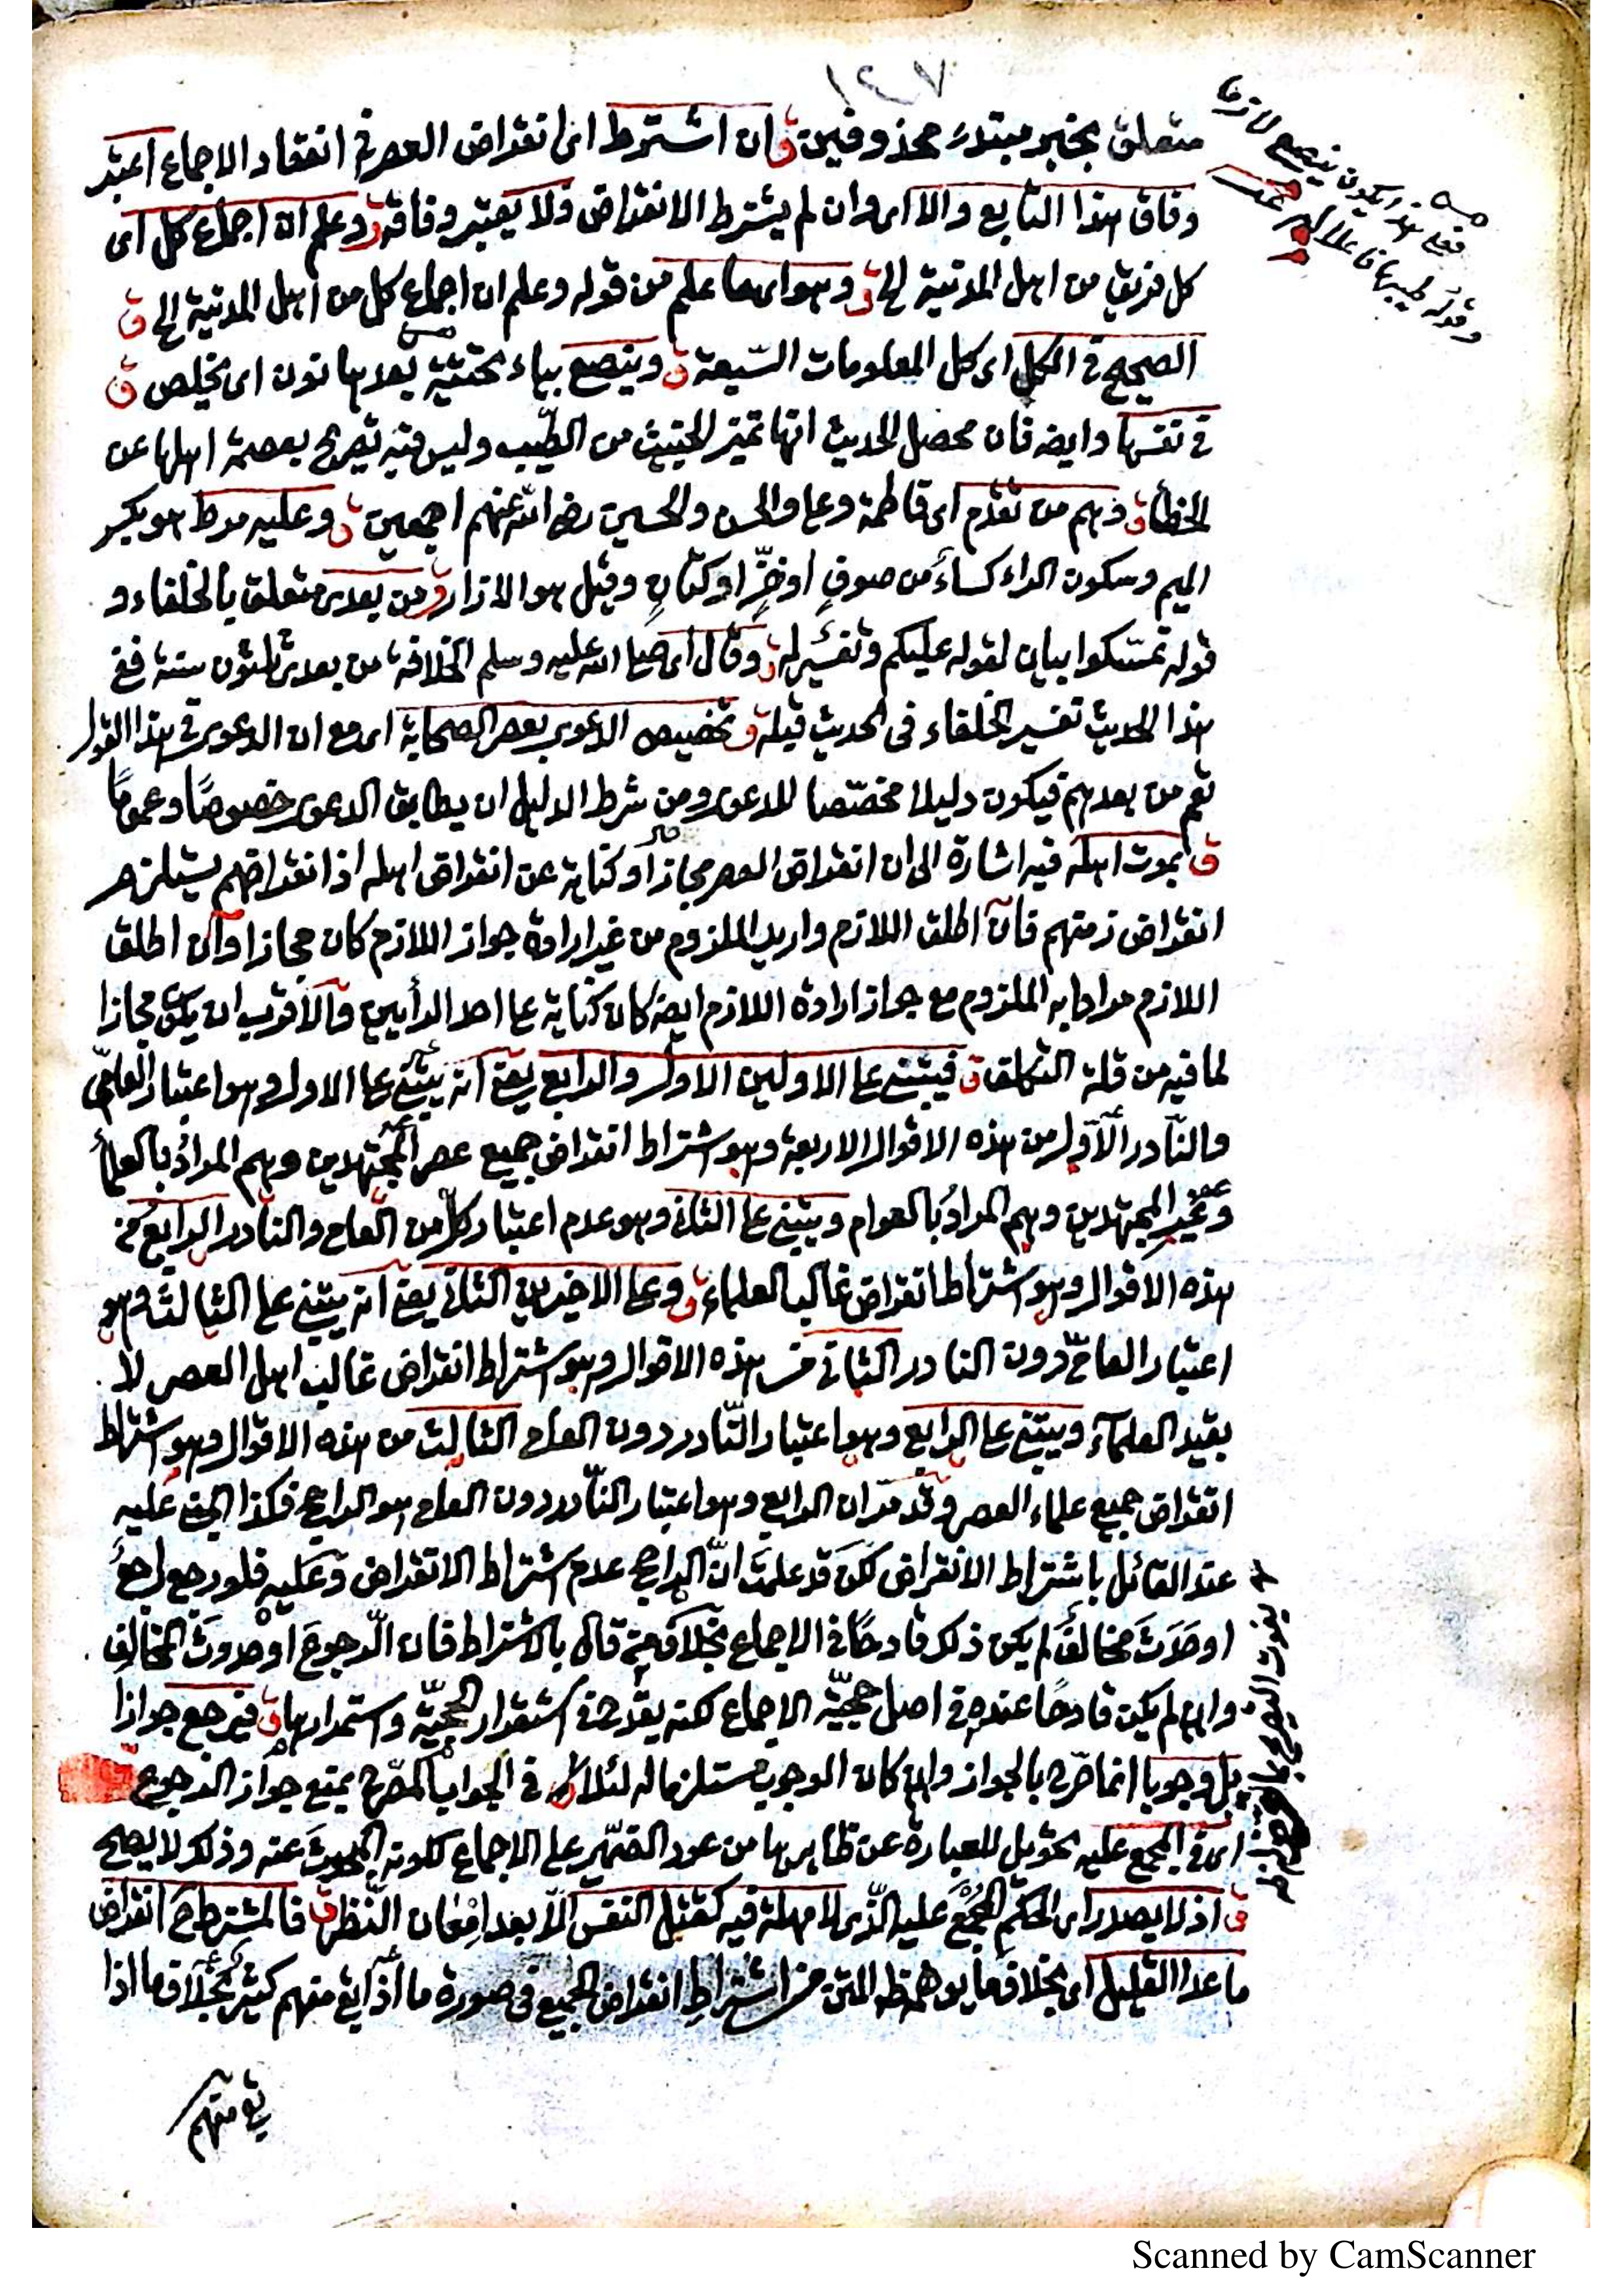 ١٤٧
متعلق بخبر مبتدء محذوفين ق وان اشترط اى انقراض العصر فى انعقاد الاجماع اعتبر
وفاق هذا التابع والا اى وان لم يشترط الانقراض فلا يعتبر وفاقه ق وعلم ان اجماع كل اى
كل فريق من اهل المدنية الخ ق وهو اى ما علم من قوله وعلم ان اجماع كل من اهل المدنية الخ ق
الصحيح فى الكل اى كل المعلومات السّبعة ق وينصع بياء تحتيّة بعدها نون اى يخلص ق
فى نفسها وايضه فان محصل الحديث انها تميز الخبيث من الطّيب وليس فيه تصريح بعصمة اهلها عن
الخطأ ق وهم من تقدّم اى فاطمة وعلى والحسن والحسين رضى الله عنهم اجمعين ق وعليه مرط هو بكسر
الميم وسكون الراء كساء من صوفٍ او خزٍّ او كتانٍ وقيل هو الازار ق من بعدى متعلق بالخلفاء و
قوله تمسّكوا بيان لقوله عليكم وتفسير له ق وقال اى صلى الله عليه وسلم الخلافة من بعدى ثلثون سنة ففى
هذا الحديث تفسير الخلفاء فى الحديث قبله ق تخصيص الدعوى بعصر الصحابة اى مع ان الدعوى فى هذا القول
تعم من بعدهم فيكون دليلا مخصّصا للدعوى ومن شرط الدليل ان يطابق الدعوى خصوصًا وعمومًا
ق بموت اهله فيه اشارة الى ان انقراض العصر مجاز او كناية عن انقراض اهله اذ انقراضهم يستلزم
انقراض زمنهم فان اطلق اللازم واريد الملزوم من غير ارادة جواز اللازم كان مجازا وان اطلق
اللازم مرادا به الملزوم مع جواز ارادة اللازم ايضه كان كناية على احد الرأيين والاقرب ان يكون مجازا
لما فيه من قلة التكلف ق فيبتنى على الاولين الاول والرابع يعنى انه يبتنى على الاول وهو اعتبار العامّى
والنّادر الاول من هذه الاقوال الاربعة وهو اشتراط انقراض جميع عصر المجتهدين وهم المرادُ بالعلماء
وغير المجتهدين وهم المرادُ بالعوام ويبتنى على الثانى وهو عدم اعتبار كلٍّ من العامى والنادر الرابعُ من
هذه الاقوال وهو اشتراط انقراض غالب العلماء ق وعلى الاخيرين الثانى يعنى انه يبتنى على الثالث وهو
اعتبار العامىّ دون النادر الثانى من هذه الاقوال وهو اشتراط انقراض غالب اهل العصر لا
بقيد العلماء ويبتنى على الرابع وهو اعتبار النّادر دون العامى الثالث من هذه الاقوال وهو اشتراط
انقراض جميع علماء العصر وقد مرّ ان الرابع وهو اعتبار النّادر دون العامى هو الراجح فكذا المبنى عليه
عند القائل باشتراط الانقراض لكن قد علمتَ انّ الراجح عدم اشتراط الانقراض وعليه فلو رجع راجعٌ
او حَدَثَ مخالفٌ لم يكن ذلك قادحًا فى الاجماع بخلافه عند من قال بالاشتراط فان الرّجوعَ او حدوثَ المخالفِ
وان لم يكن قادحًا عنده فى اصل حجيّة الاجماع لكنه يقدح فى استقرار الحجيّة واستمرارها ق فيرجع جوازا
بل وجوبا انما صرّح بالجواز وان كان الوجوب مستلزما له لئلا فى الجواب المصرّح بمنع جواز الرجوع ق
اى فى المجمع عليه تحويل للعبارة عن ظاهرها من عود الضّمير على الاجماع لكونه المبحوث عنه وذلك لا يصح
ق اذ لا يصدر اى الحكم المجمع عليه الّذى لا مهلة فيه كقتل النفس الّا بعد امعان النّظر ق فالمشترط ح انقراض
ما عدا القليل اى بخلاف ما يوهمه ظ المتن من اشتراط انقراض الجميع فى صورة ما اذا بقى منهم كثير بخلاف ما اذا
بقى منهم